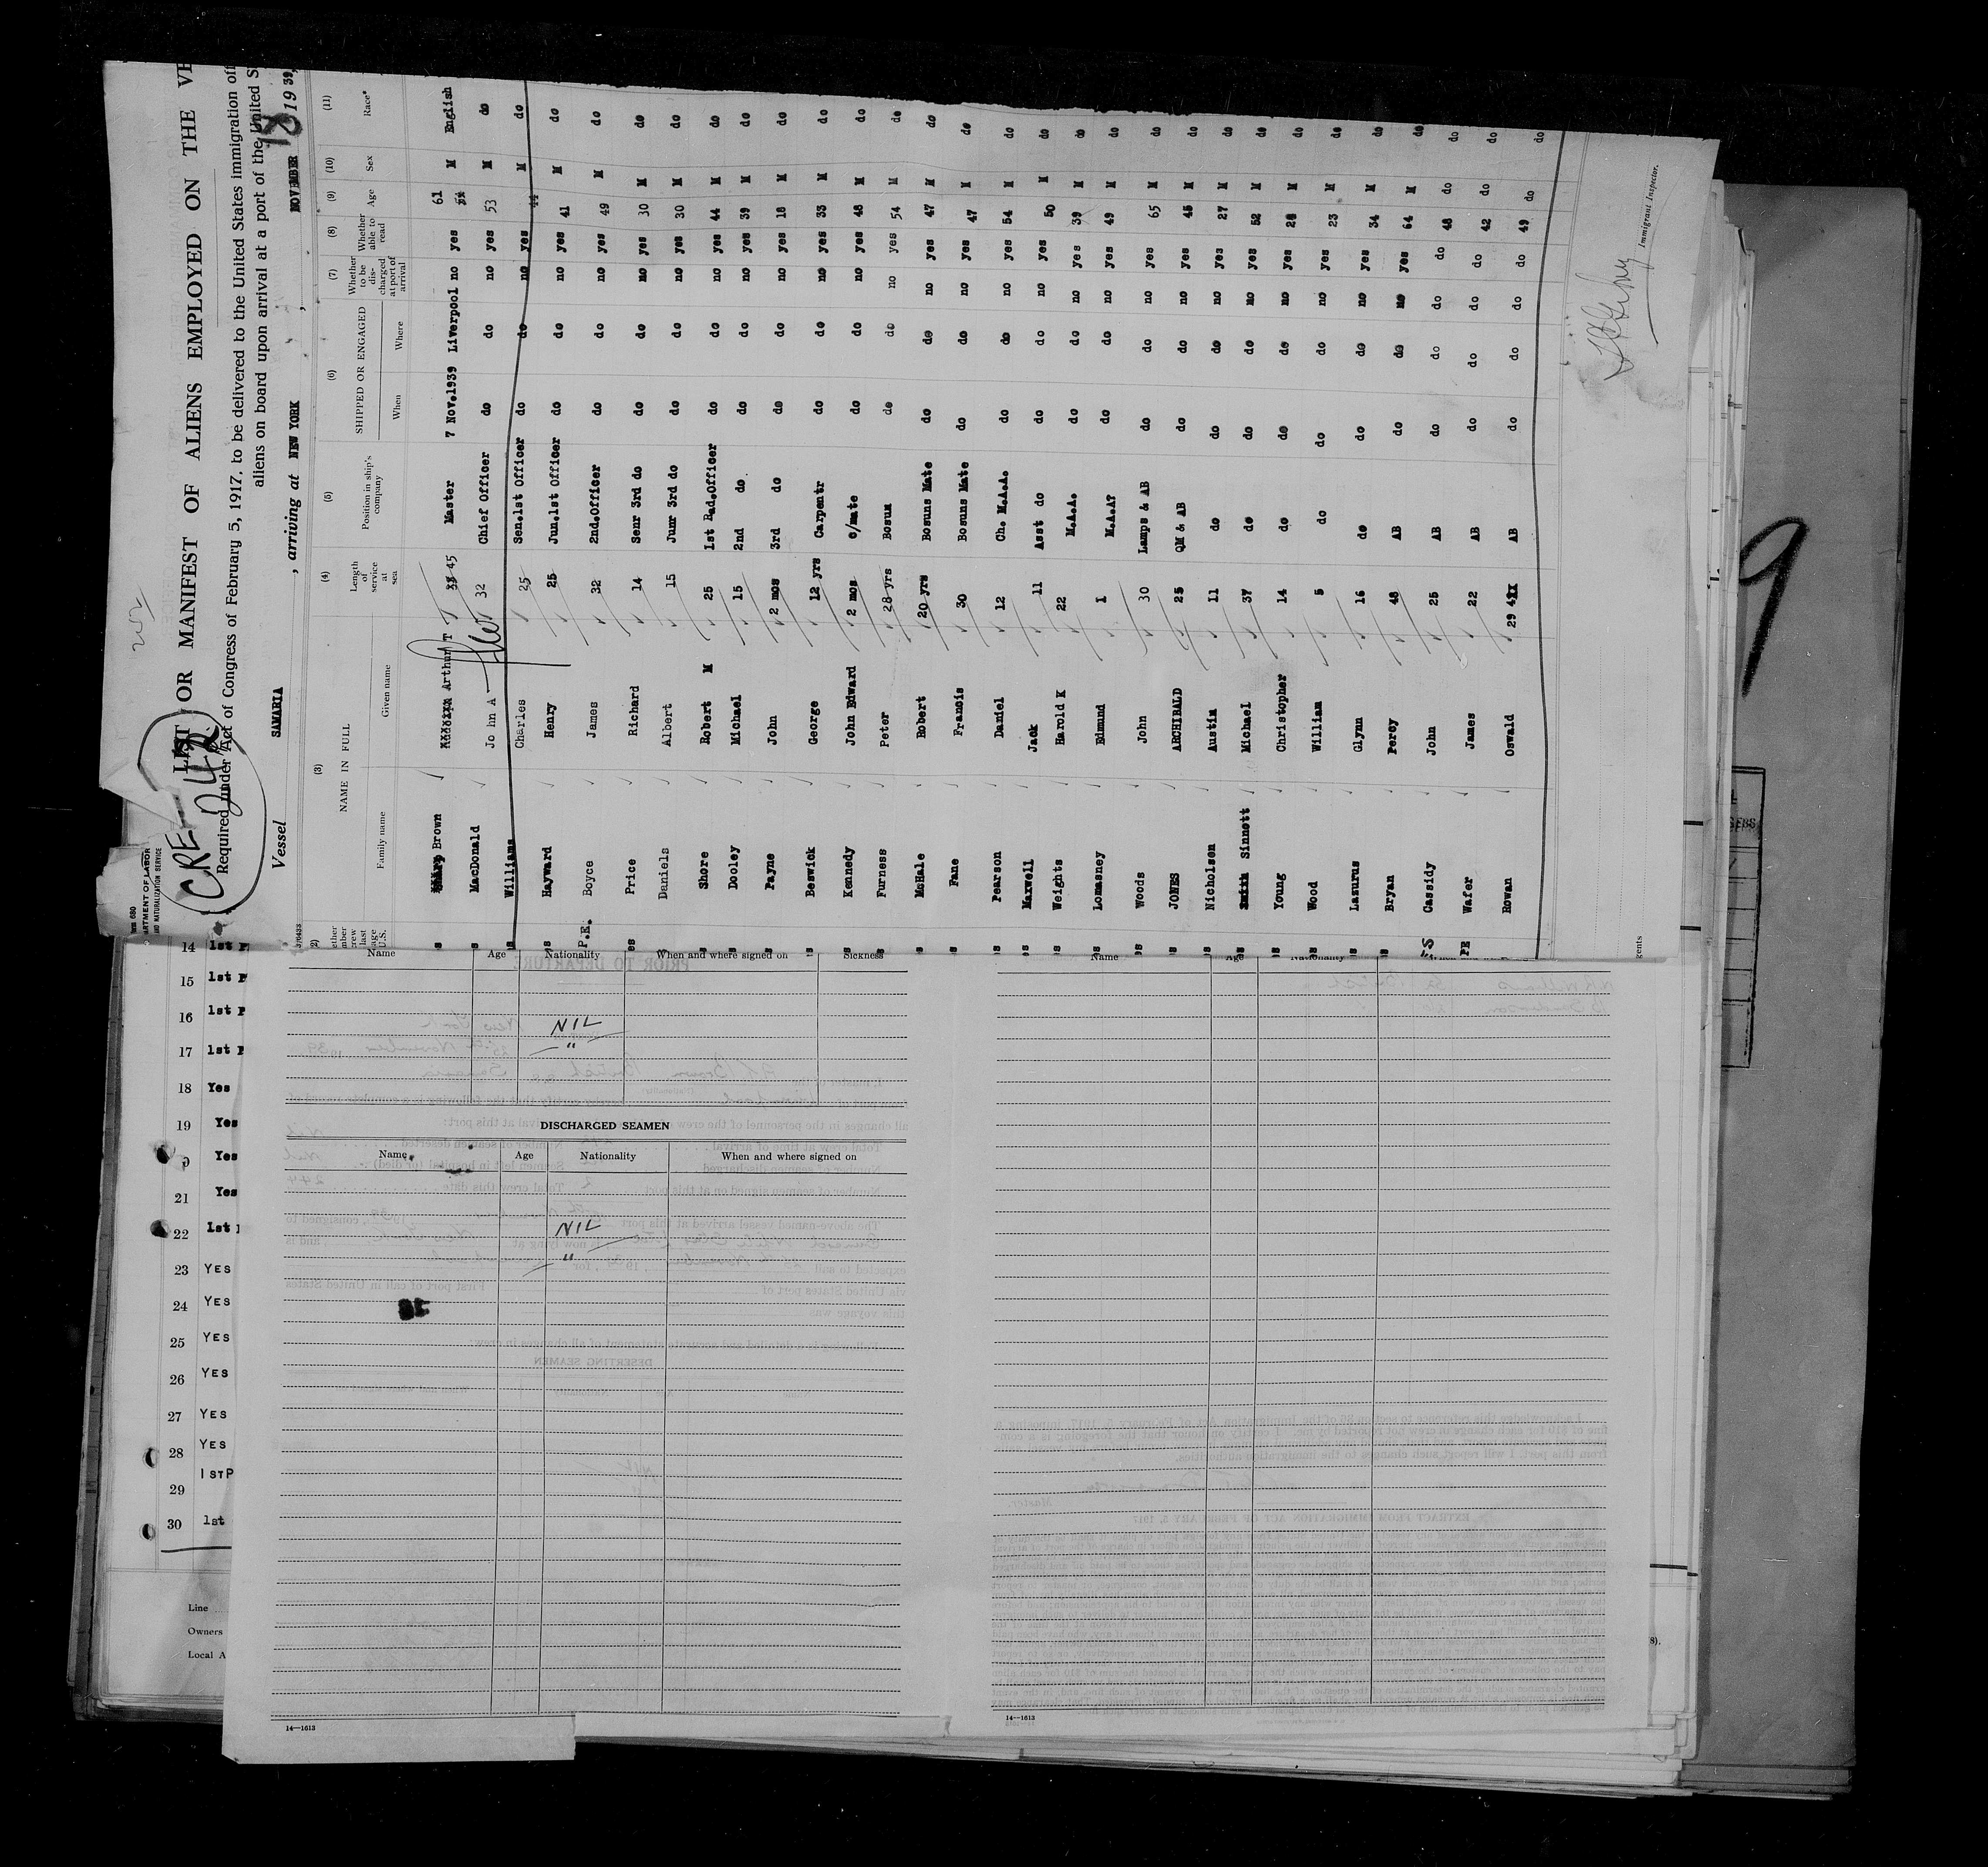 LIST OR MANIFEST OF ALIENS EMPLOYED ON THE
Required under Act of Congress of February 5, 1917, to be delivered to the United States immigration
aliens on board upon arrival at a port of the United
CREW
Vessel SAMARIA , arriving at NEW YORK , NOVEMBER 18 1939,
(3) (4) (5) (6) (7) (8) (9) (10) (11)
NAME IN FULL Length of service at sea Position in ship's company SHIPPED OR ENGAGED Whether to be discharged at port of arrival Whether able to read Age Sex Race*
Family name Given name When Where
Brown Arthur T 45 Master 7 Nov.1939 Liverpool no yes 61 M English
MacDonald John A 32 Chief Officer do do no yes 53 M do
Williams Charles 25 Sen.1st Officer do do no yes 44 M do
Hayward Henry 25 Jun.1st Officer do do no yes 41 M do
P.E. Boyce James 32 2nd.Officer do do no yes 49 M do
Price Richard 14 Senr 3rd do do do no yes 30 M do
Daniels Albert 15 Junr 3rd do do do no yes 30 M do
Shore Robert M 25 1st Rad.Officer do do no yes 44 M do
Dooley Michael 15 2nd do. do do no yes 39 M do
Payne John 2 mos 3rd do do do no yes 18 M do
Beswick George 12 yrs Carpentr do do no yes 33 M do
Kennedy John Edward 2 mos c/mate do do no yes 48 M do
Furness Peter 28 yrs Bosun do do no yes 54 M do
McHale Robert 20 yrs Bosuns Mate do do no yes 47 M do
Fane Francis 30 Bosuns Mate do do no yes 47 M do
Pearson Daniel 12 Ch. M.A.A. do do no yes 54 M do
Maxwell Jack 11 Asst do do do no yes 50 M do
Weights Harold K 22 M.A.A. do do no yes 39 M do
Lomasney Edmund 1 M.A.A? do do no yes 49 M do
Woods John 30 Lamps & AB do do no yes 65 M do
JONES ARCHIBALD 25 QM & AB do do no yes 45 M do
Nicholson Austin 11 do do do no yes 27 M do
Sinnott Michael 37 do do do no yes 52 M do
Young Christopher 14 do do do no yes 28 M do
Wood William 5 do do do no yes 23 M do
Lazurus Glynn 16 do do do no yes 34 M do
Bryan Percy 48 AB do do no yes 64 M do
Cassidy John 25 AB do do do do 48 do do
PE Wafer James 22 AB do do do do 42 do do
Rowan Oswald 29 AB do do do do 49 do do
Immigrant Inspector.
9
14 1st P
15 1st P
16 1st P
17 1st P
18 Yes
19 Yes
Yes
21 Yes
22 1st
23 YES
24 YES
25 YES
26 YES
27 YES
28 YES
29 1STP
30 1st
Line
Owners
Local A
Name Age Nationality When and where signed on Sickness
NIL
"
DISCHARGED SEAMEN
Name Age Nationality When and where signed on
NIL
"
14—1613
Name Age Nationality
14—1613